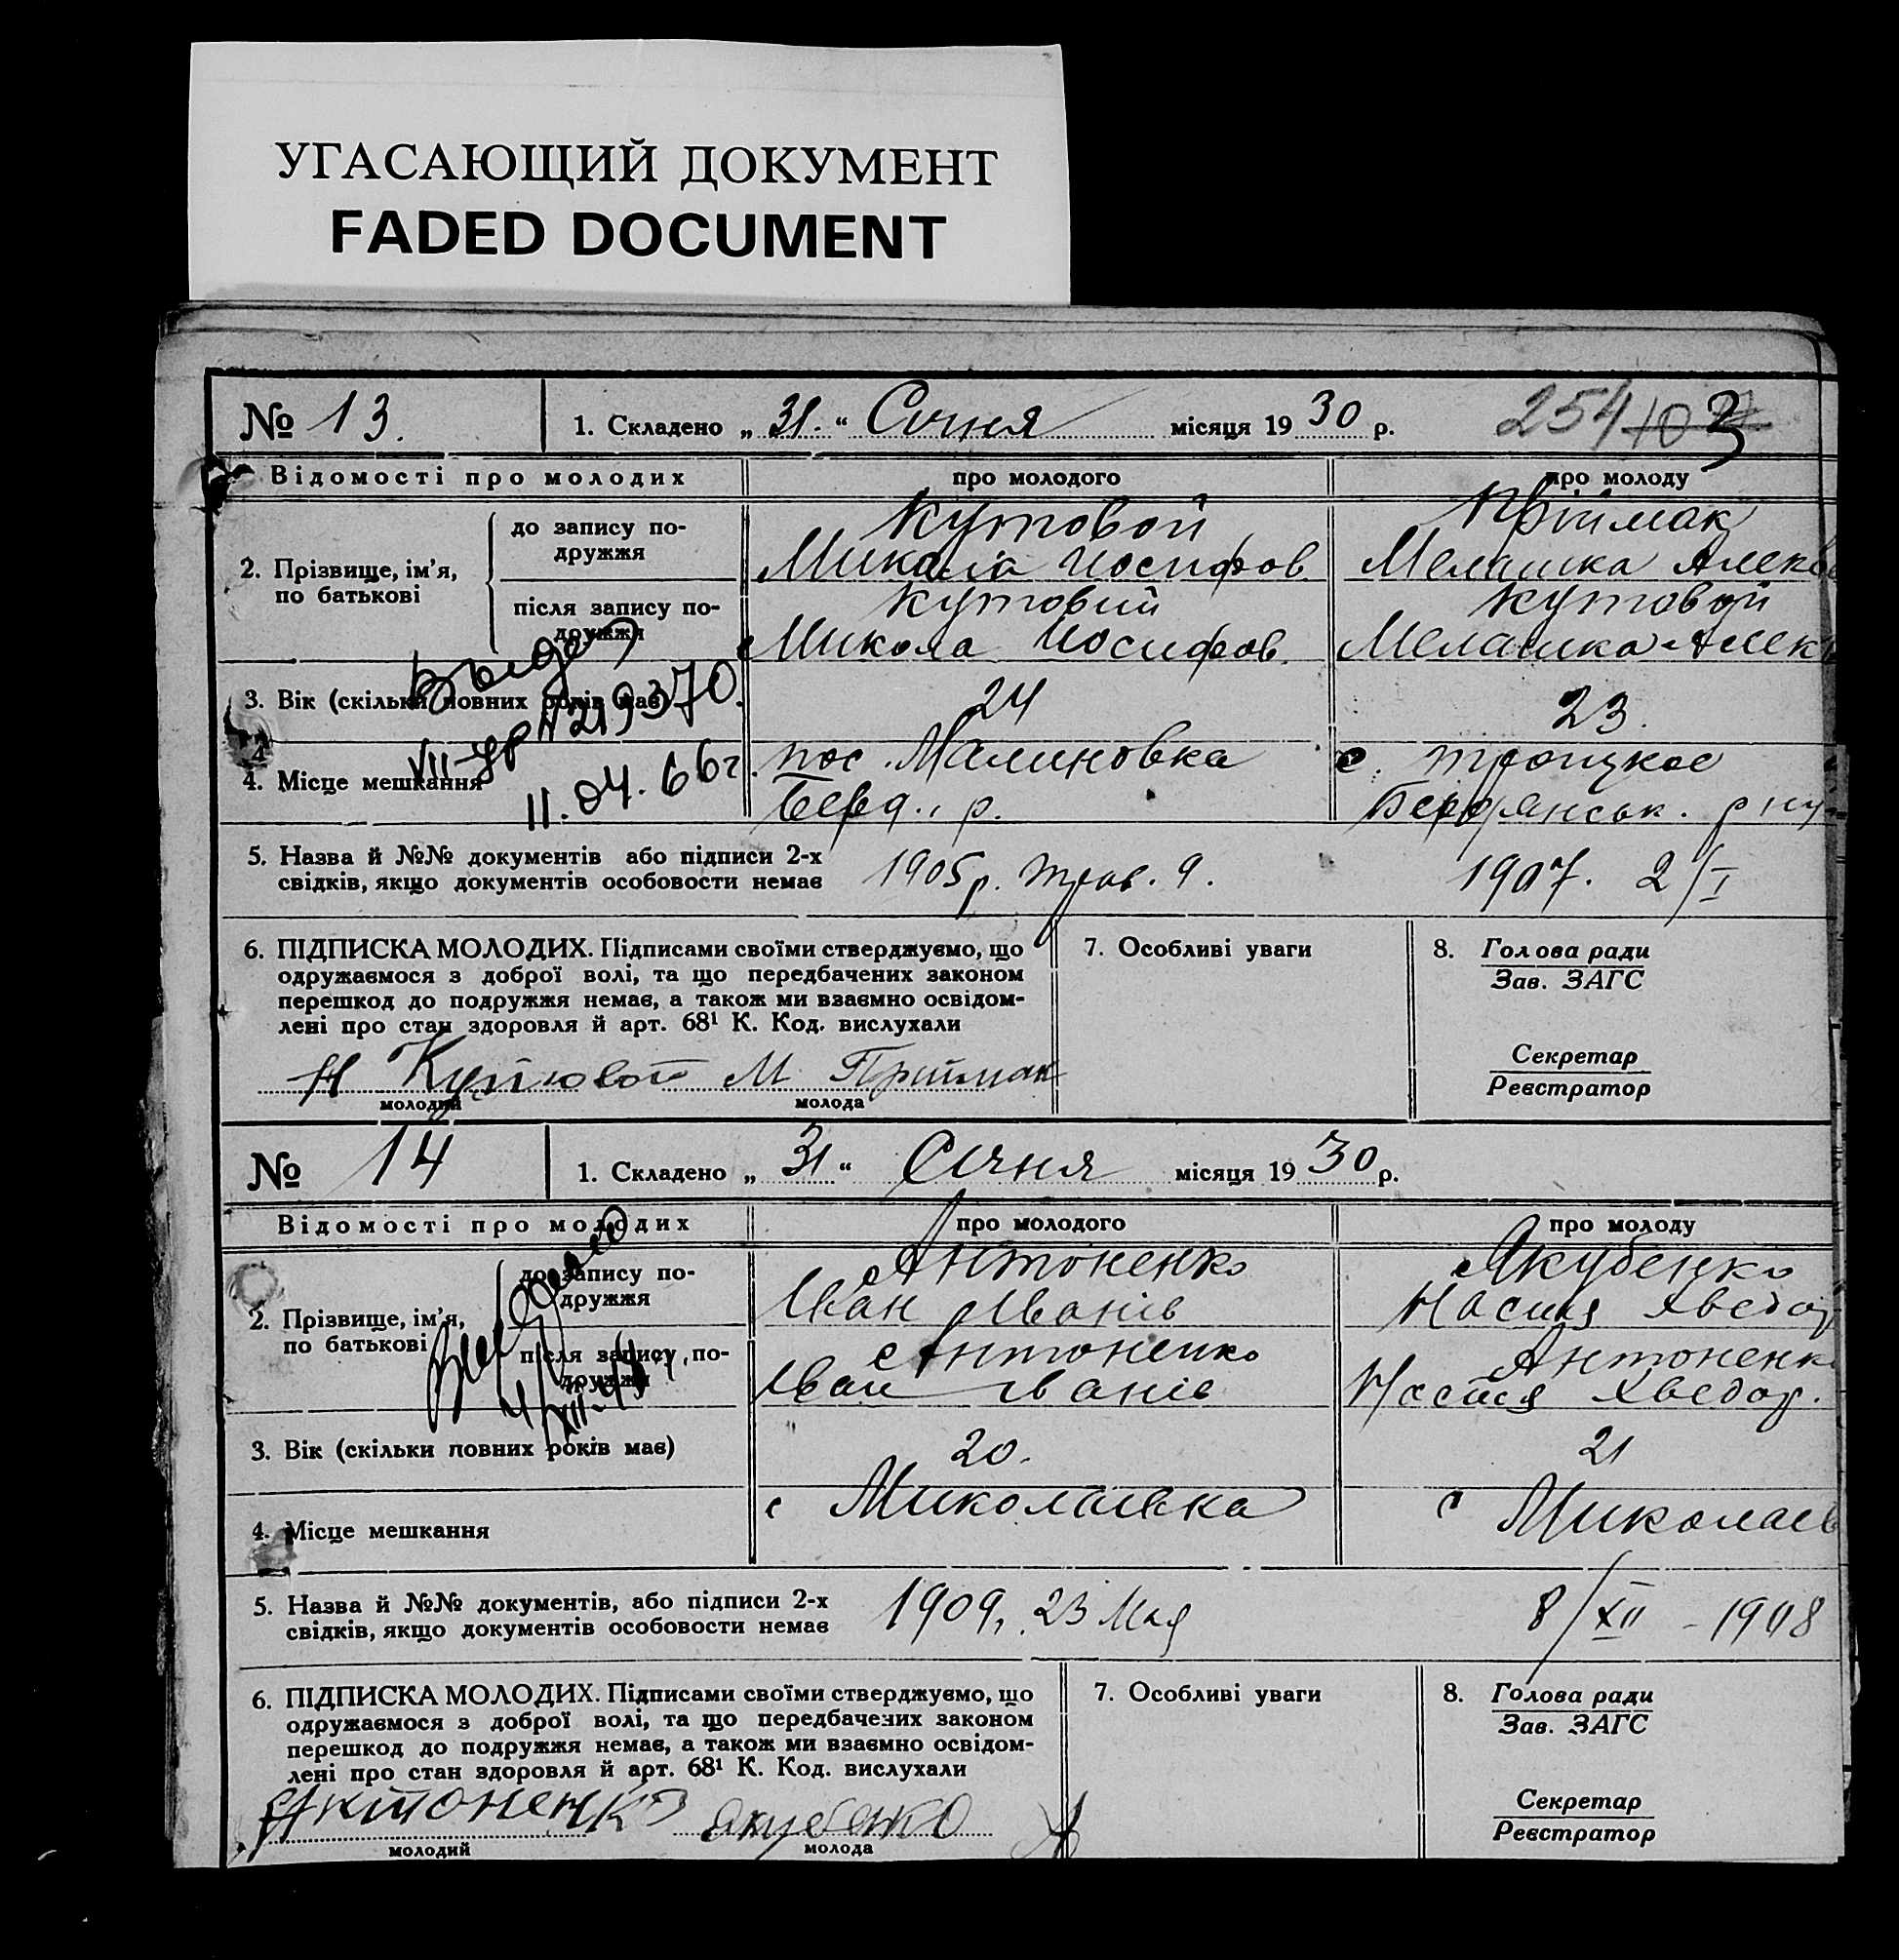 УГАСАЮЩИЙ ДОКУМЕНТ
FADED DOCUMENT
№ 13. 1. Складено „31.“ Січня місяця 1930 р. 254 103
Відомості про молодих про молодого про молоду
2. Прізвище, ім’я, по батькові
до запису по-
дружжя
Кутовой
Микола Иосифов
Приймак
Мелашка Алек
після запису по-
дружжя
Кутовий
Микола Иосифов.
Кутовой
Мелашка Алек
3. Вік (скільки повних років має) 24 23.
VII-
N 219370.
11.04.66г.
4. Місце мешкання
пос. Малиновка
Берд. р.
с. Троицкое
Бердянськ. р
5. Назва й №№ документів або підписи 2-х
свідків, якщо документів особовости немає
1905 р. трав. 9. 1907. 2/I
6. ПІДПИСКА МОЛОДИХ. Підписами своїми стверджуємо, що
одружаємося з доброї волі, та що передбачених законом
перешкод до подружжя немає, а також ми взаємно освідом-
лені про стан здоровля й арт. 68¹ К. Код. вислухали
Н Кутовой М Приймак
молодий молода
7. Особливі уваги
8. Голова ради
Зав. ЗАГС
Секретар
Реєстратор
№ 14 1. Складено „31“ Січня місяця 1930 р.
Відомості про молодих про молодого про молоду
2. Прізвище, ім’я,
по батькові
до запису по-
дружжя
Антоненко
Іван Іванів
Якубенко
Настя Хведор
після запису по-
дружжя
Антоненко
Іван Іванів
Антоненк
Настя Хведор.
3. Вік (скільки повних років має) 20. 21
4. Місце мешкання
с Миколаівка с Миколаів
5. Назва й №№ документів, або підписи 2-х
свідків, якщо документів особовости немає
1909, 23 Мая 8/XII - 1908
6. ПІДПИСКА МОЛОДИХ. Підписами своїми стверджуємо, що
одружаємося з доброї волі, та що передбачених законом
перешкод до подружжя немає, а також ми взаємно освідом-
лені про стан здоровля й арт. 68¹ К. Код. вислухали
Антоненко Якубенко
молодий молода
7. Особливі уваги
8. Голова ради
Зав. ЗАГС
Секретар
Реєстратор